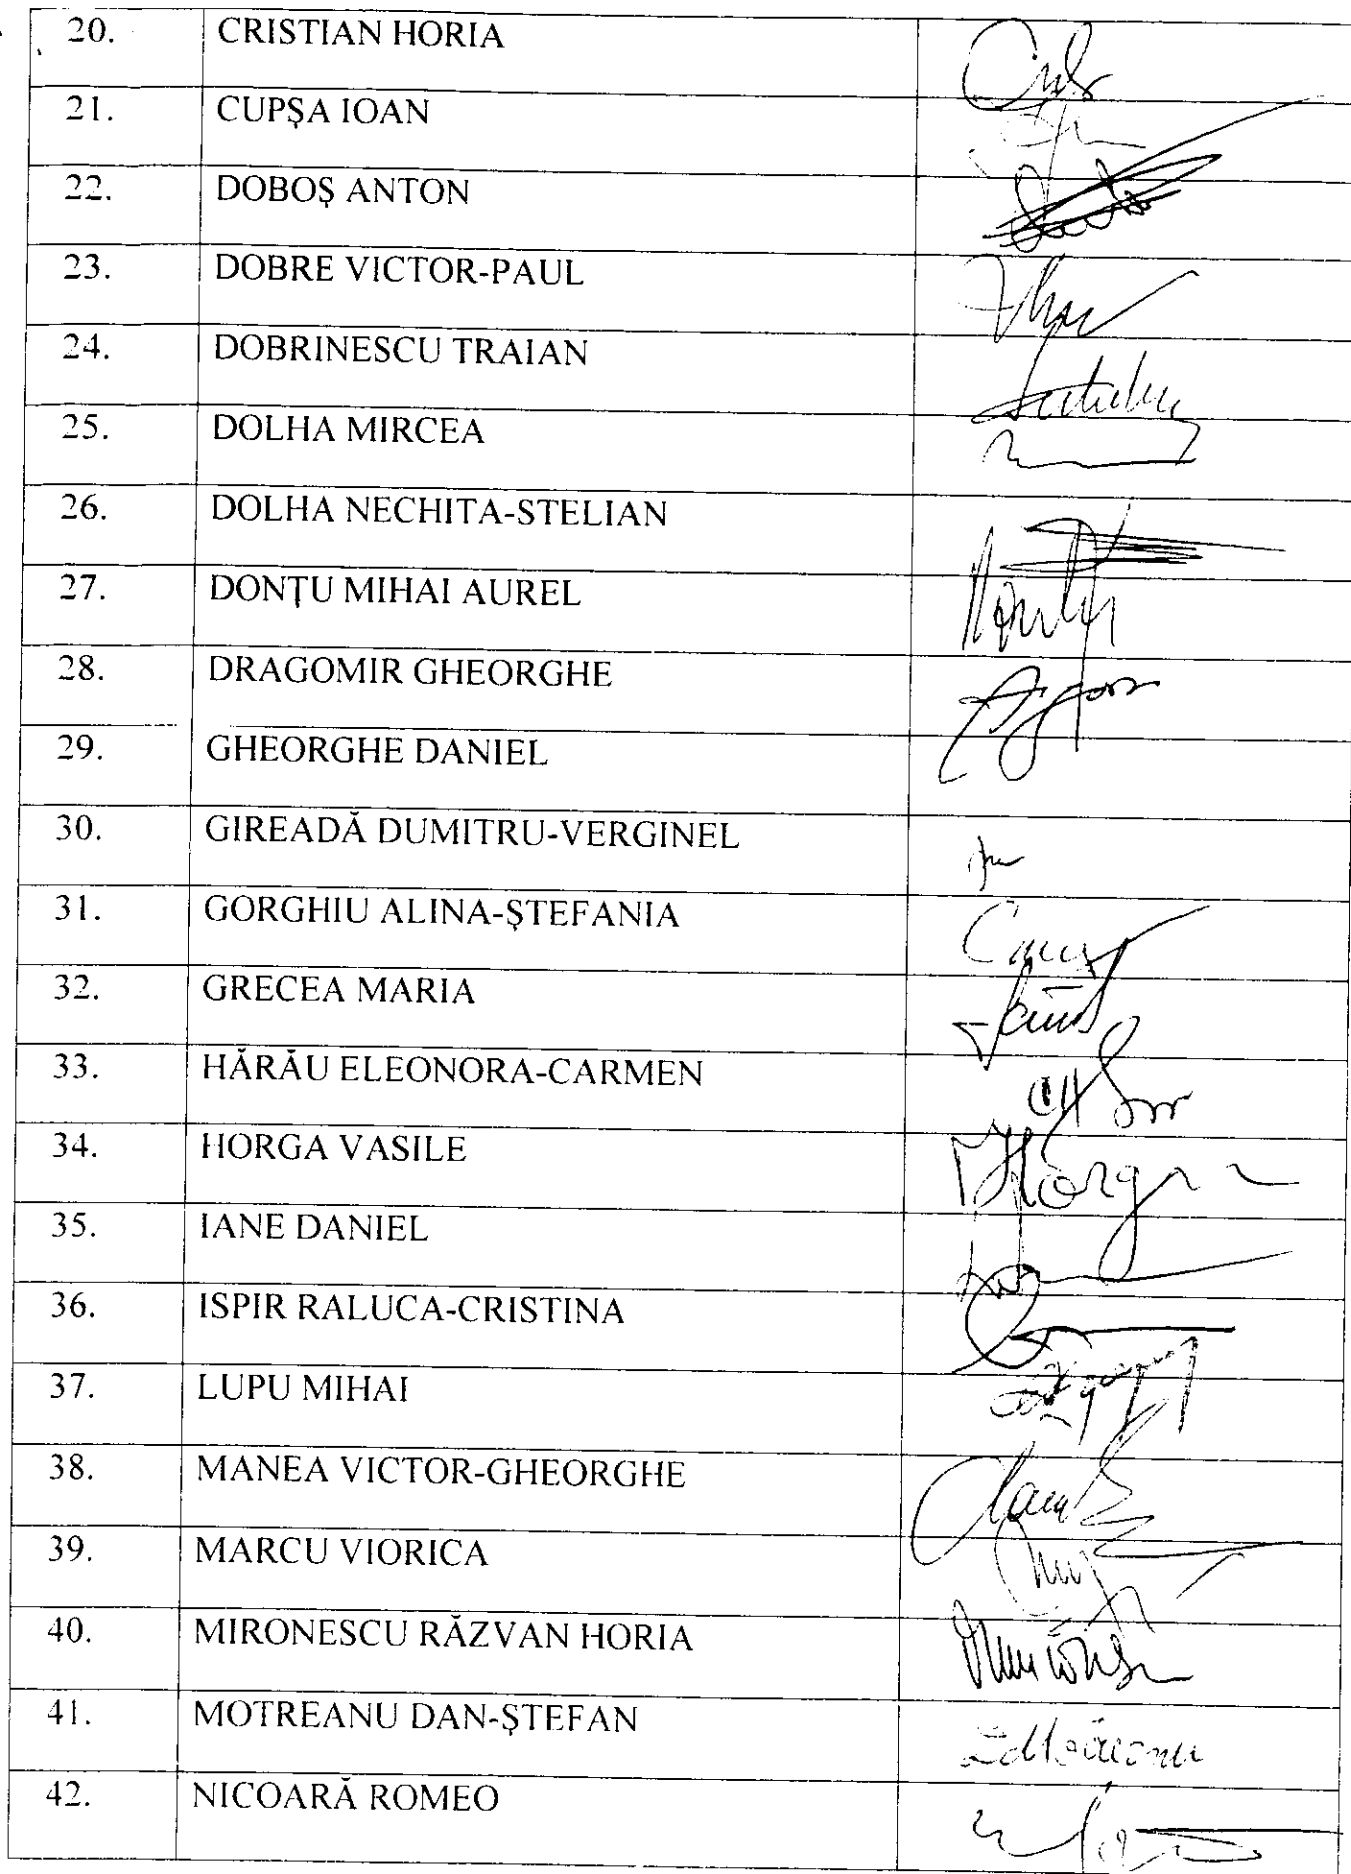 20. CRISTIAN HORIA
21. CUPȘA IOAN
22. DOBOȘ ANTON
23. DOBRE VICTOR-PAUL
24. DOBRINESCU TRAIAN
25. DOLHA MIRCEA
26. DOLHA NECHITA-STELIAN
27. DONȚU MIHAI AUREL
28. DRAGOMIR GHEORGHE
29. GHEORGHE DANIEL
30. GIREADĂ DUMITRU-VERGINEL
31. GORGHIU ALINA-ȘTEFANIA
32. GRECEA MARIA
33. HĂRĂU ELEONORA-CARMEN
34. HORGA VASILE
35. IANE DANIEL
36. ISPIR RALUCA-CRISTINA
37. LUPU MIHAI
38. MANEA VICTOR-GHEORGHE
39. MARCU VIORICA
40. MIRONESCU RĂZVAN HORIA
41. MOTREANU DAN-ȘTEFAN
42. NICOARĂ ROMEO